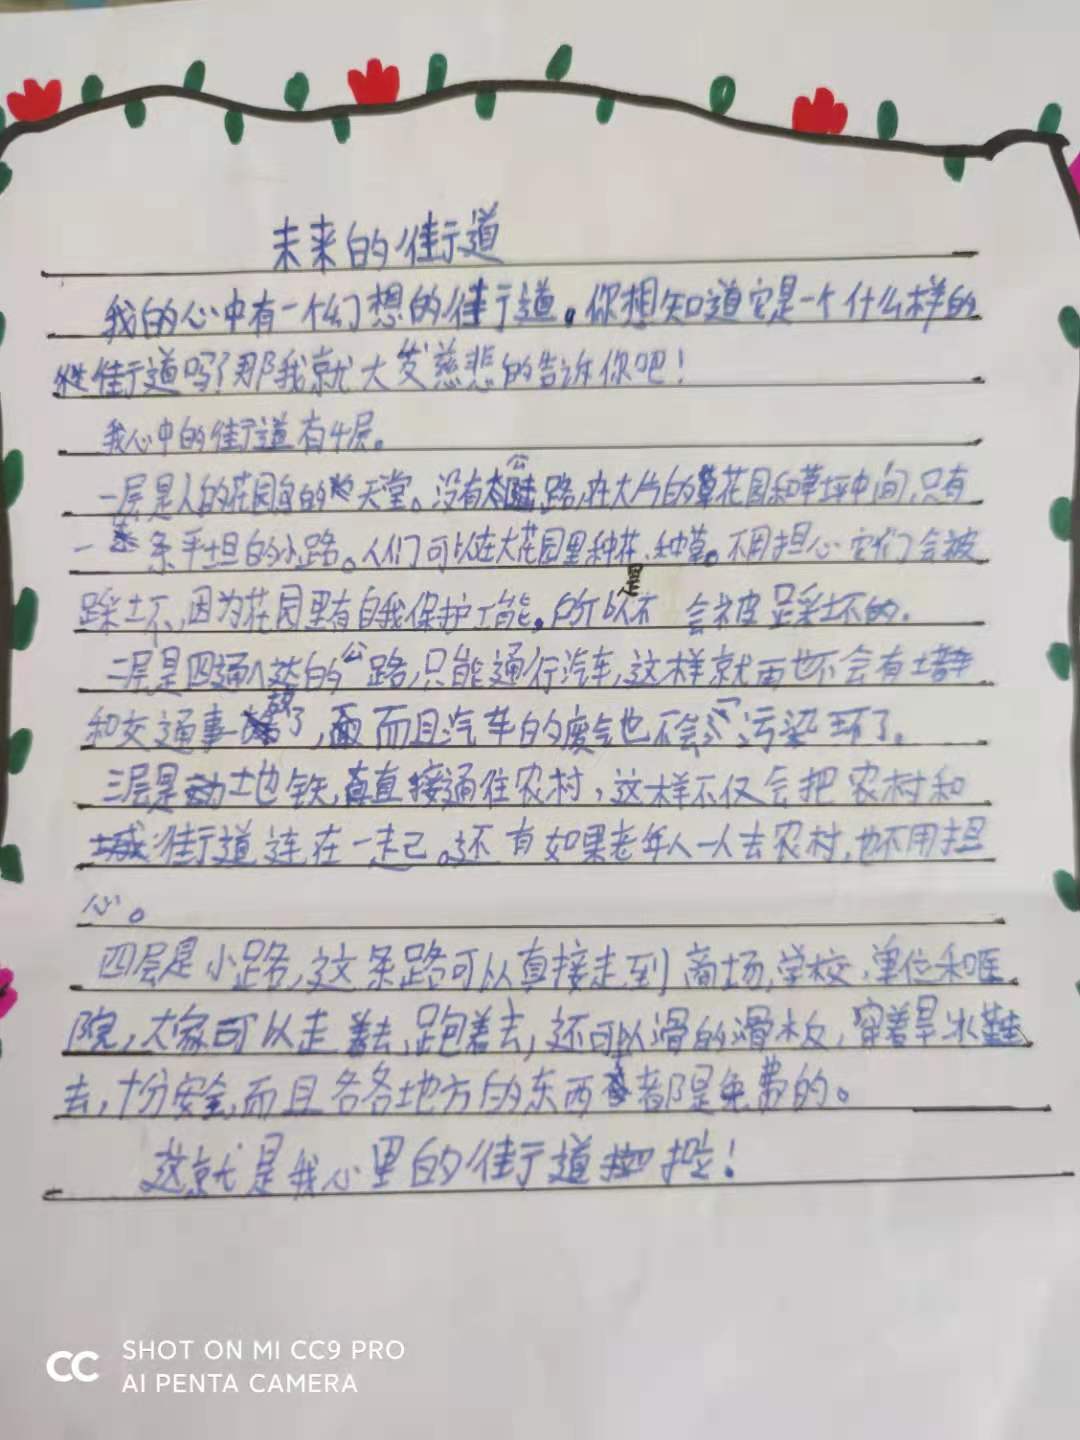 未来的街道
我的心中有一个幻想的街道。你想知道它是一个什么样的
街道吗？那我就大发慈悲的告诉你吧！
我心中的街道有4层。
一层是人的花园鸟的天堂。没有公路,在大片的花园和草坪中间,只有
一条平坦的小路。人们可以在大花园里种花、种草。不用担心它们会被
踩坏,因为花园里有自我保护功能。所以是不会被踩坏的。
二层是四通八达的公路,只能通行汽车,这样就再也不会有堵车
和交通事故了,而且汽车的废气也不会污染环了。
三层是地铁,直接通往农村,这样不仅会把农村和
街道连在一起。还有如果老年人一人去农村,也不用担
心。
四层是小路,这条路可以直接走到商场,学校,单位和医
院,大家可以走着去,跑着去,还可以滑的滑板,穿着旱冰鞋
去,十分安全,而且各各地方的东西都是免费的。
这就是我心里的街道啦!
SHOT ON MI CC9 PRO
AI PENTA CAMERA